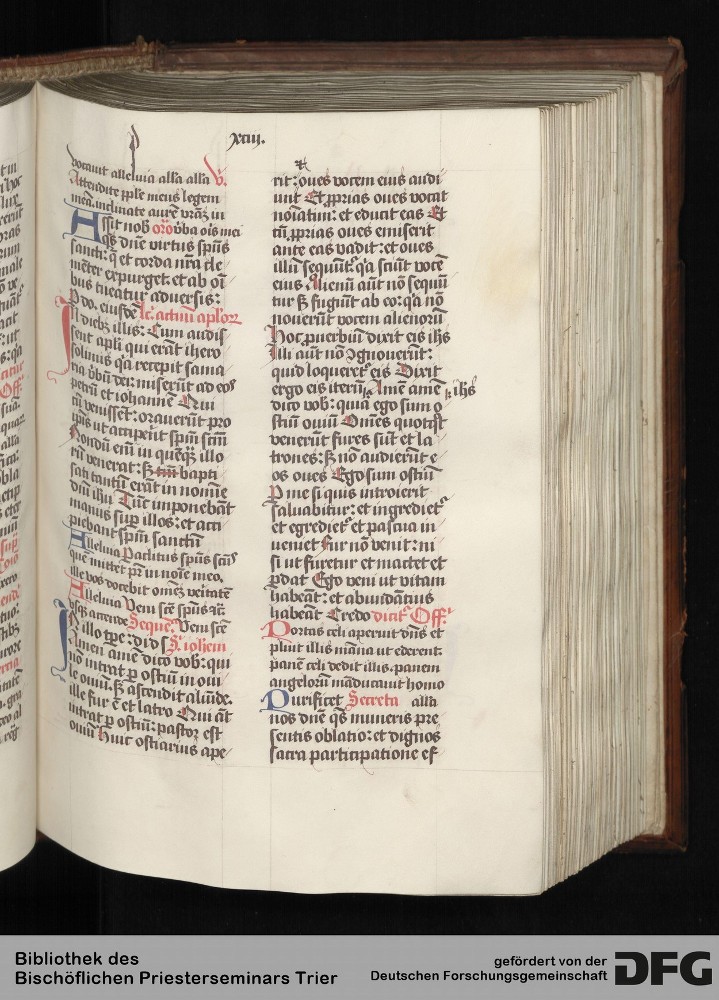 xciii.
vocauit alleluia alla alla V.
Attendite pple meus legem
meā. inclinate aurē vrāz in
Assit nob orō vba ois mei
qs dñe virtus spūs
sancti: q et corda nrā cle
mēter expurget. et ab oī
bus tueatur aduersis:
P do. eiusdē lc. actuū aplor
In dieb illis: Cum audis
sent apli qui erāt ihero
solimis qa recepit sama
ria vbū dei: miserūt ad eos
petrū et iohannē Qui
cū venissēt: orauerūt pro
ipis ut acciperēt spm scm
Nondū eni in quēqz illo
rū venerat: sz bapti
sati tantū erāt in nomine
dni ihu Tūc imponebāt
manus sup illos: et acci
piebant spm sanctū
Alleluia Paclitus spūs scūs
quē mittet pr in noīe meo.
ille vos docebit omēz veitatē
Alleluia Veni scē spūs rc̄
vsqz attende Sequē. Veni scē
In illo tpe: di d s S. iohem
Amen amē dico vob: qui
nō intrat p ostiū in oui
le ouiū. sz ascendit aliūde.
ille fur ē et latro Qui āt
intrat p ostiū: pastor est
ouiū Huic ostiarius ape
rit: oues vocem eius audi
unt Et pprias oues vocat
noīatim: et educit eas Et
cū pprias oues emiserit
ante eas vadit: et oues
illū sequūt. qa sciūt vocē
eius Alienū aūt nō sequū
tur sz fugiūt ab eo: qa nō
nouerūt vocem alienorū
Hoc puerbiū dixit eis ihs
Illi aūt nō ɔgnouerūt:
quid loqueret eis Dixit
ergo eis iterū Amē amē ihs
dico vob: quia ego sum o
stiū ouiū Omēs quotqt
venerūt fures sūt et la
trones: sz nō audierūt e
os oues Ego sum ostiū
P me si quis introierit
saluabitur: et ingrediet
et egrediet et pascua in
ueniet Fur nō venit: ni
si ut furetur et mactet et
pdat Ego veni ut vitam
habeāt: et abundātius
habeāt Credo dicit Off.
Portas celi aperuit dns et
pluit illis māna ut ederent:
panē celi dedit illis. panem
angelorū māducauit homo
Purificet Secreta alla
nos dne qs muneris pre
sentis oblatio: et dignos
sacra participatione ef
Bibliothek des
Bischöflichen Priesterseminars Trier
gefördert von der
Deutschen Forschungsgemeinschaft
DFG